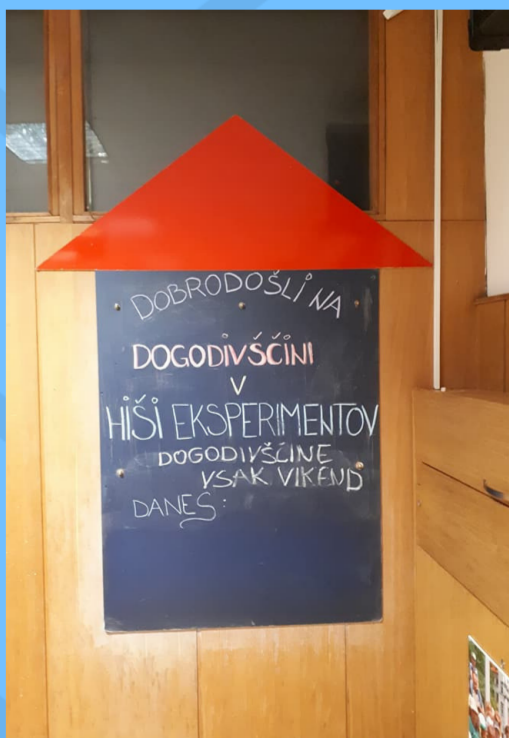 DOBRODOŠLI NA
DOGODIVŠČINI
V
HIŠI EKSPERIMENTOV
DOGODIVŠČINE
VSAK VIKEND
DANES: